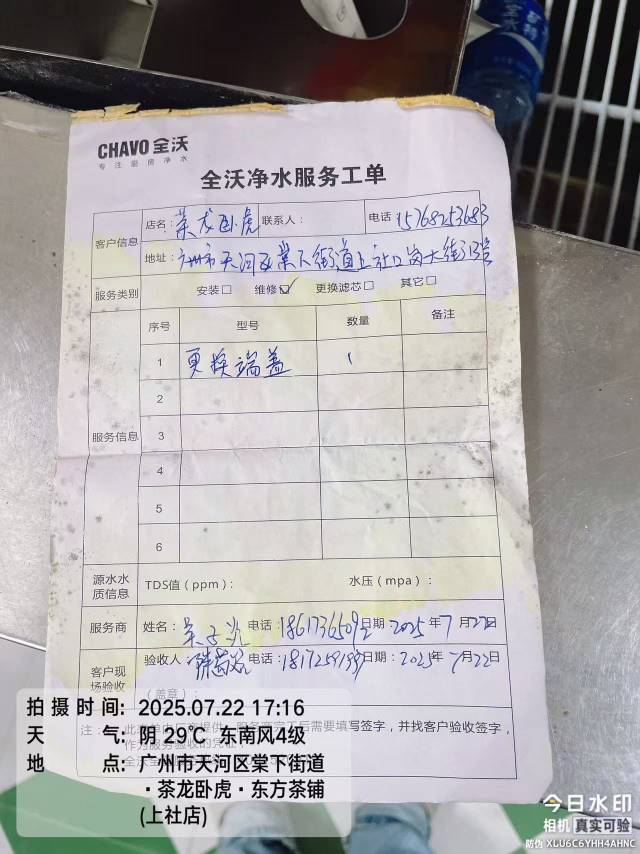 CHAVO 全沃
专注厨房净水
全沃净水服务工单
客户信息 店名：茶龙卧虎 联系人： 电话 15768253683
地址：广州市天河区棠下街道上社口岗大街13号
服务类别 安装□ 维修☑ 更换滤芯□ 其它□
服务信息 序号 型号 数量 备注
1 更换端盖 1
2
3
4
5
6
源水水质信息 TDS值（ppm）： 水压（mpa）：
服务商 姓名： 电话：18617365092 日期：2025年7月22日
客户现场验收 验收人： 电话： 日期：2025年7月22日
（盖章）：
注：
服务商完工后需要填写签字，并找客户验收签字，
作为服务验收的凭证，
拍摄时间：2025.07.22 17:16
天气：阴 29℃ 东南风4级
地点：广州市天河区棠下街道
·茶龙卧虎·东方茶铺
(上社店)
今日水印
相机 真实可验
防伪 XLU6C6YHH4AHNC